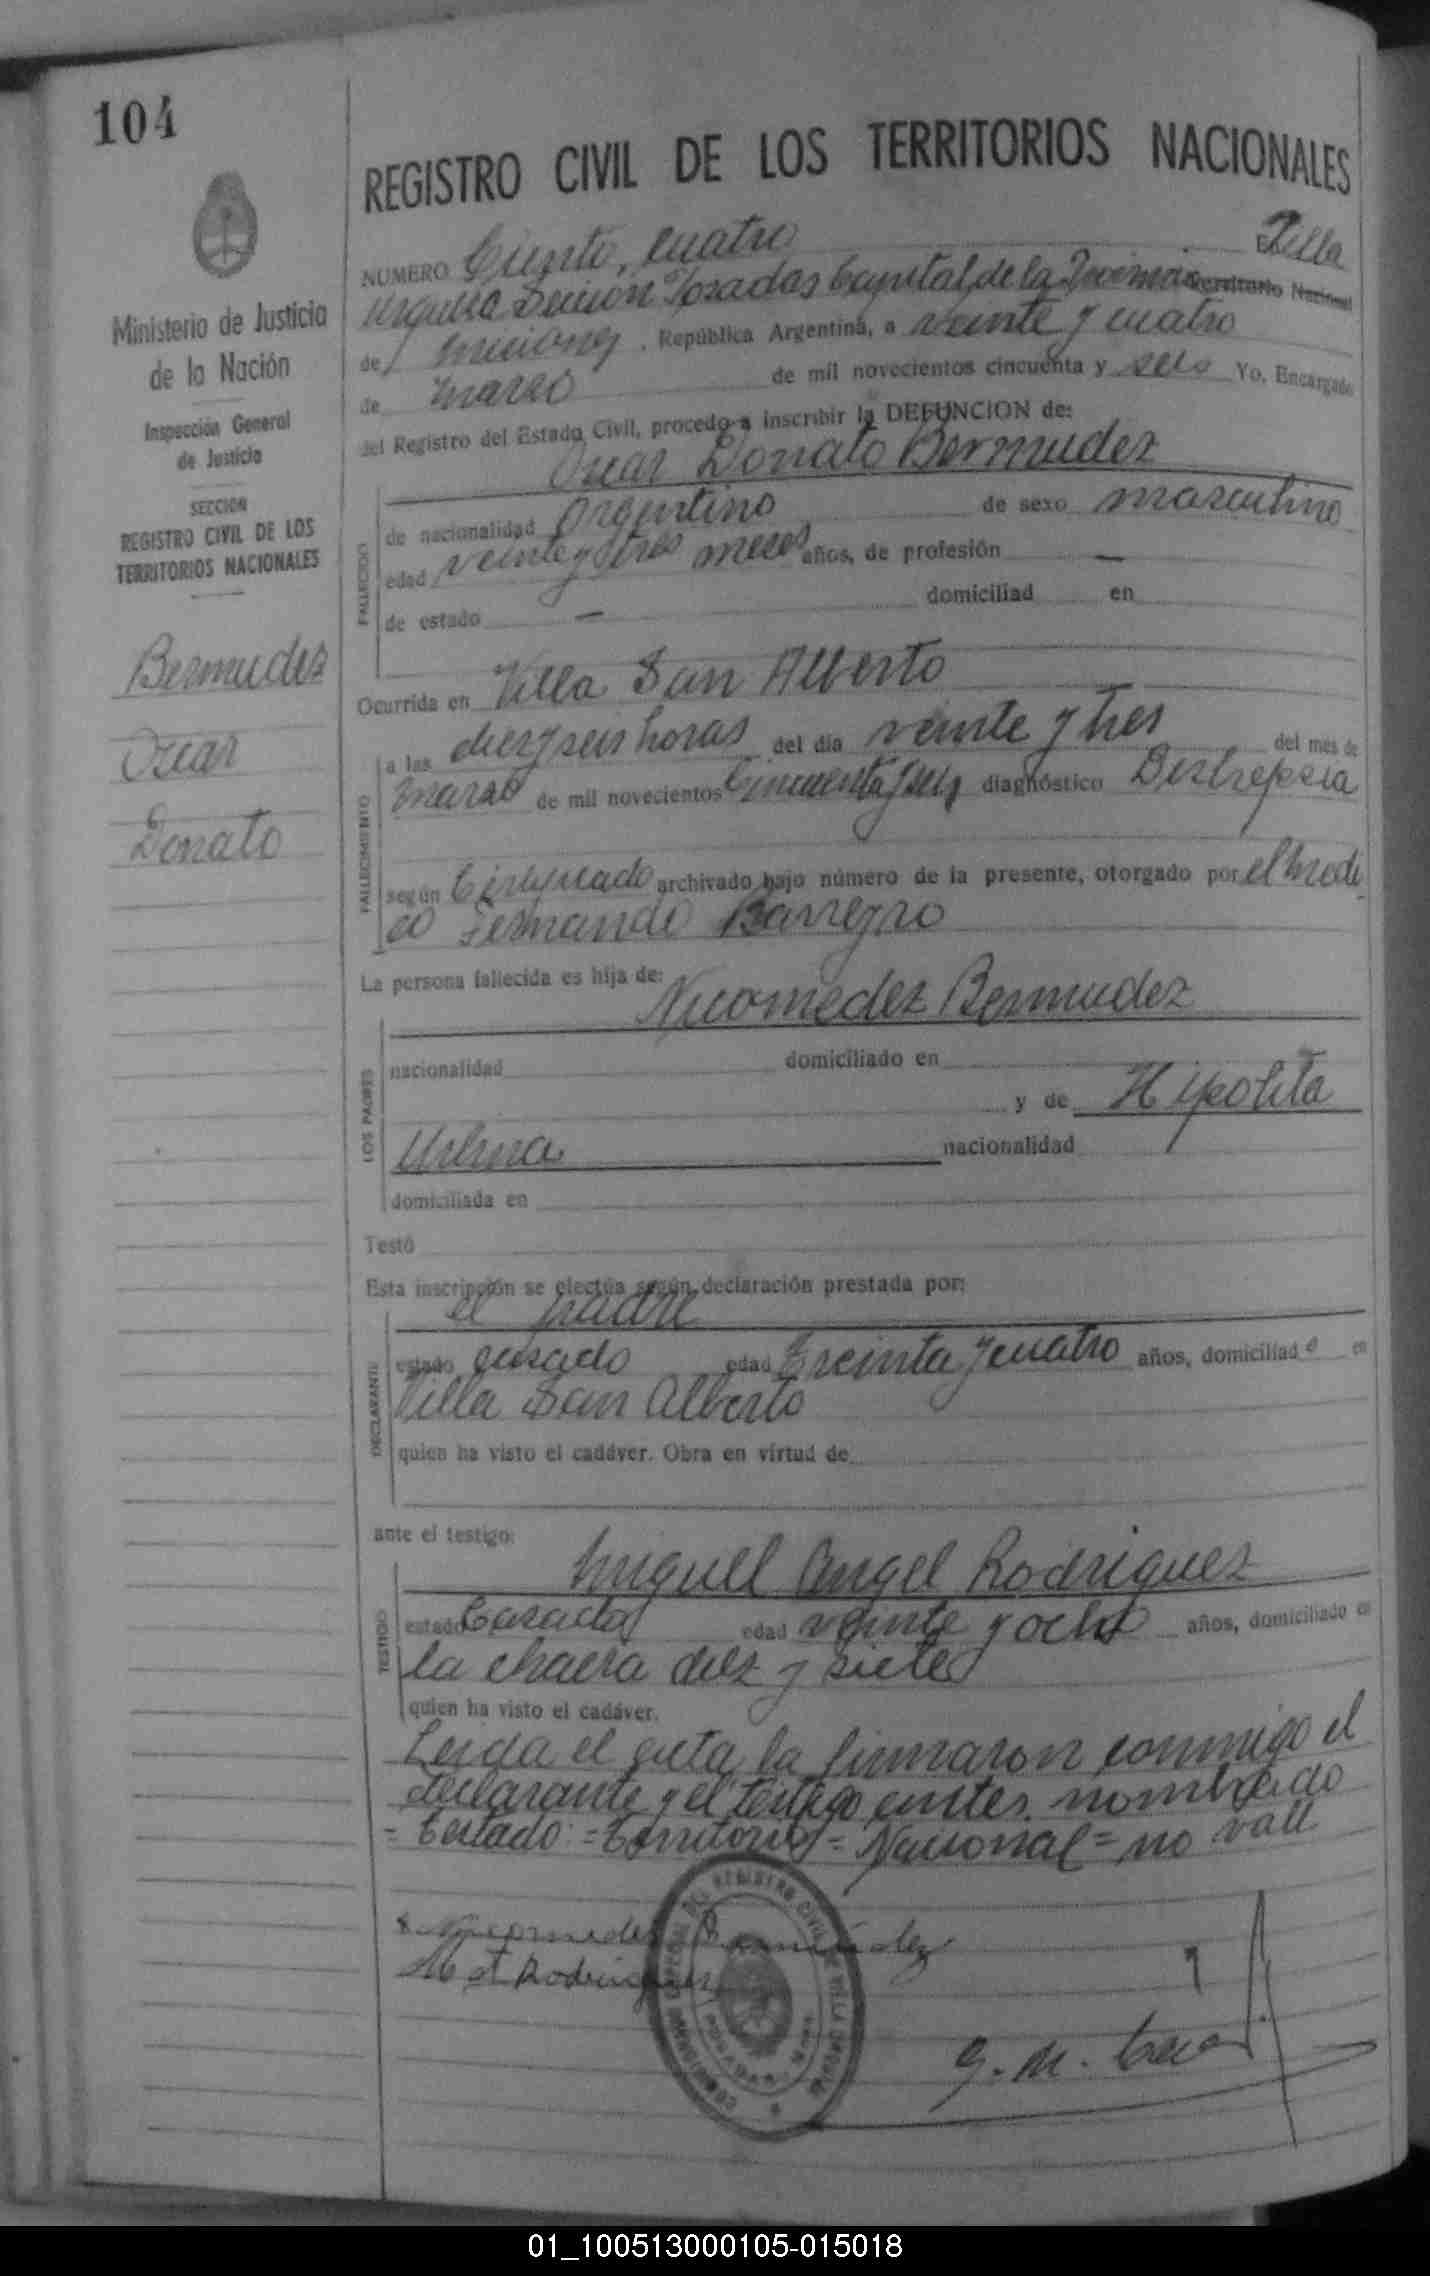 104
REGISTRO CIVIL DE LOS TERRITORIOS NACIONALES
Ministerio de Justicia
de la Nación
Inspección General
de Justicia
SECCION
REGISTRO CIVIL DE LOS
TERRITORIOS NACIONALES
Bermudez
Oscar
Donato
NUMERO Ciento, cuatro En Villa
Urquiza Sección Posadas Capital de la Provincia Territorio Nacional
de Misiones, República Argentina, a veinte y cuatro
de marzo de mil novecientos cincuenta y seis Yo, Encargado
del Registro del Estado Civil, procedo a inscribir la DEFUNCION de:
Oscar Donato Bermudez
FALLECIDO
de nacionalidad Argentino de sexo masculino
edad veinte y tres meses años, de profesión —
de estado — domiciliad en
Ocurrida en Villa San Alberto
FALLECIMIENTO
a las diez y seis horas del día veinte y tres del mes de
marzo de mil novecientos cincuenta y seis diagnóstico
según Certificado archivado bajo número de la presente, otorgado por el medi
co Fernando Barreyro
La persona fallecida es hija de:
Nicomedez Bermudez
LOS PADRES
nacionalidad domiciliado en
y de Hipolita
nacionalidad
domiciliada en
Testó
Esta inscripción se efectúa según declaración prestada por:
el padre
DECLARANTE
estado casado edad treinta y cuatro años, domiciliado en
Villa San Alberto
quien ha visto el cadáver. Obra en virtud de
ante el testigo:
Miguel Angel Rodriguez
TESTIGO
estado Casado edad veinte y ocho años, domiciliado en
la chacra diez y siete
quien ha visto el cadáver.
Leida el acta la firmaron conmigo el
declarante y el testigo antes nombrado
= Testado: = Territorio = Nacional = no vale
Nicomedes Bermúdez
M A Rodriguez
DEL REGISTRO CIVIL
POSADAS
01_100513000105-015018